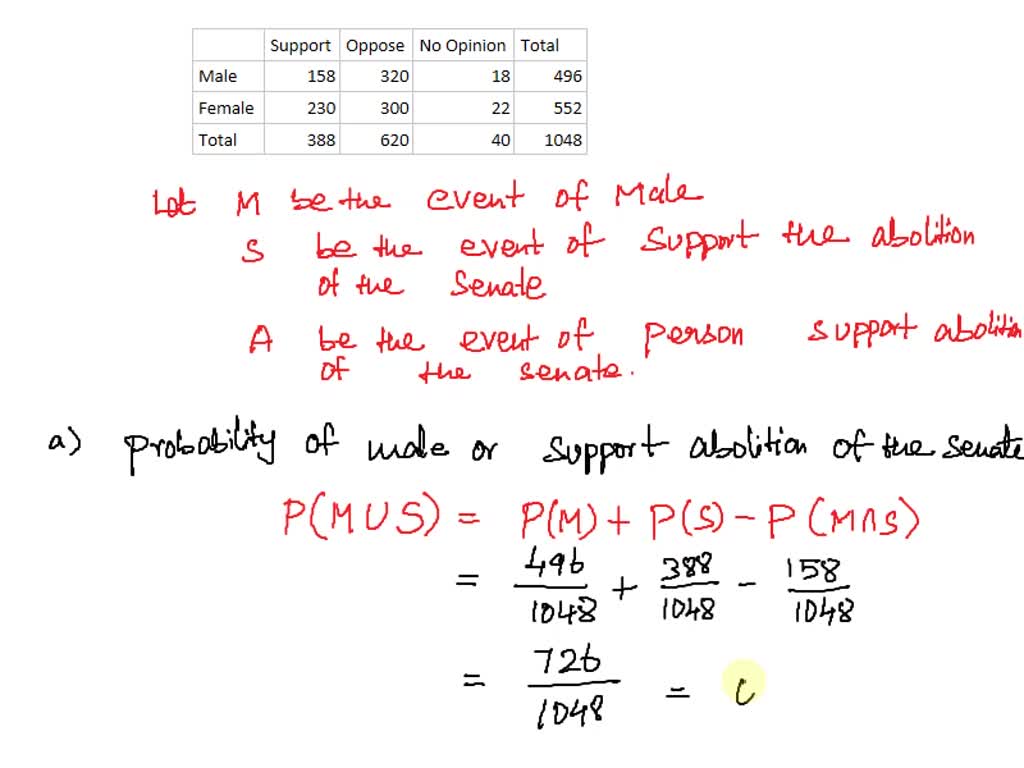 Support Oppose No Opinion Total
Male 158 320 18 496
Female 230 300 22 552
Total 388 620 40 1048
Let M be the event of Male
S be the event of support the abolition
of the Senate
A be the event of person support abolition
of the senate.
a) probability of male or support abolition of the senate
P(M∪S) = P(M) + P(S) - P(M∩S)
= 496/1048 + 388/1048 - 158/1048
= 726/1048 = 0